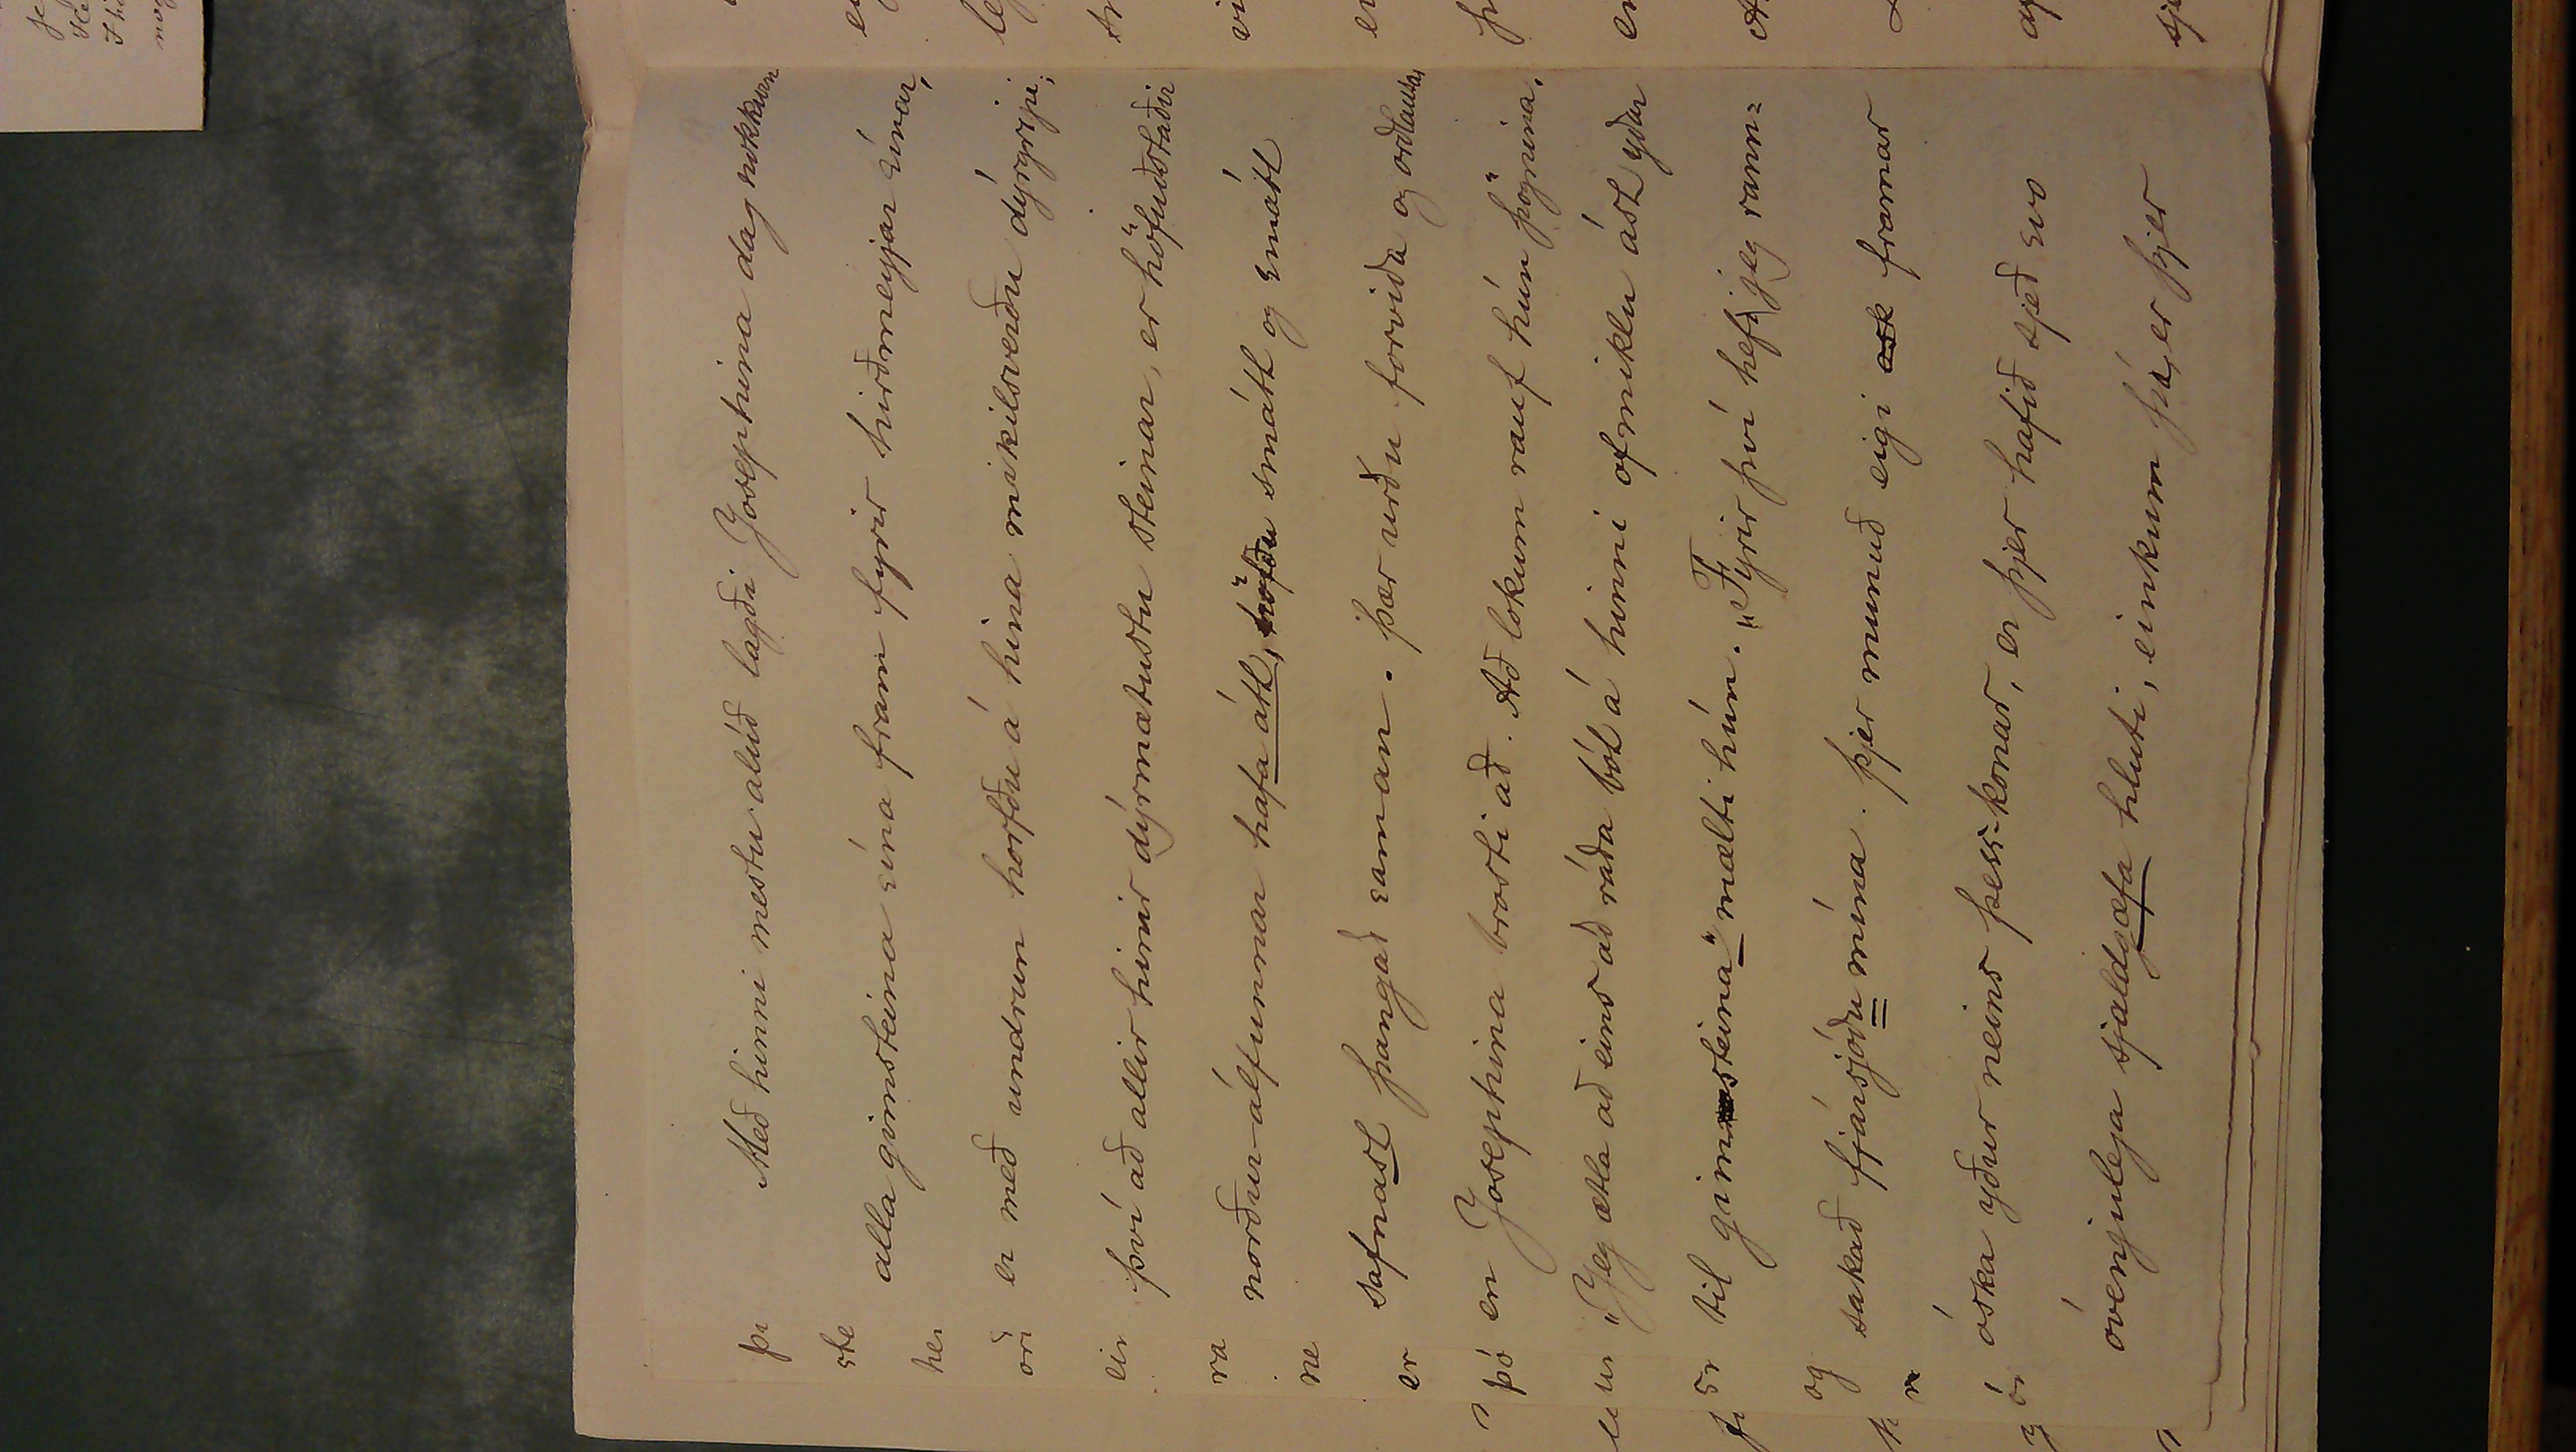 Með hinni mestu alúð lagði Josephina dag nokkurn
alla gimsteina sína fram fyrir hirðmeyjar sínar,
er með undrun horfðu á hina mikilsverðu dýrgripi;
því að allir hinir dýrmætustu steinar, er höfuðstaðir
norður-álfunnar hafa átt, höfðu smátt og smátt
safnast þangað saman. Þær urðu forviða og orðlausar,
en Josephina brosti að. Að lokum rauf hún þögnina.
"Jeg ætla að eins að ráða bót á hinni ofmiklu ást yðar
til gimsteina" mælti hún. "Fyrir því hefi jeg rann=
sakað fjársjóðu mína. Þjer munuð eigi framar
óska yður neins þess-konar, er þjer hafið sjeð svo
óvenjulega sjaldgæfa hluti, einkum þá, er þjer